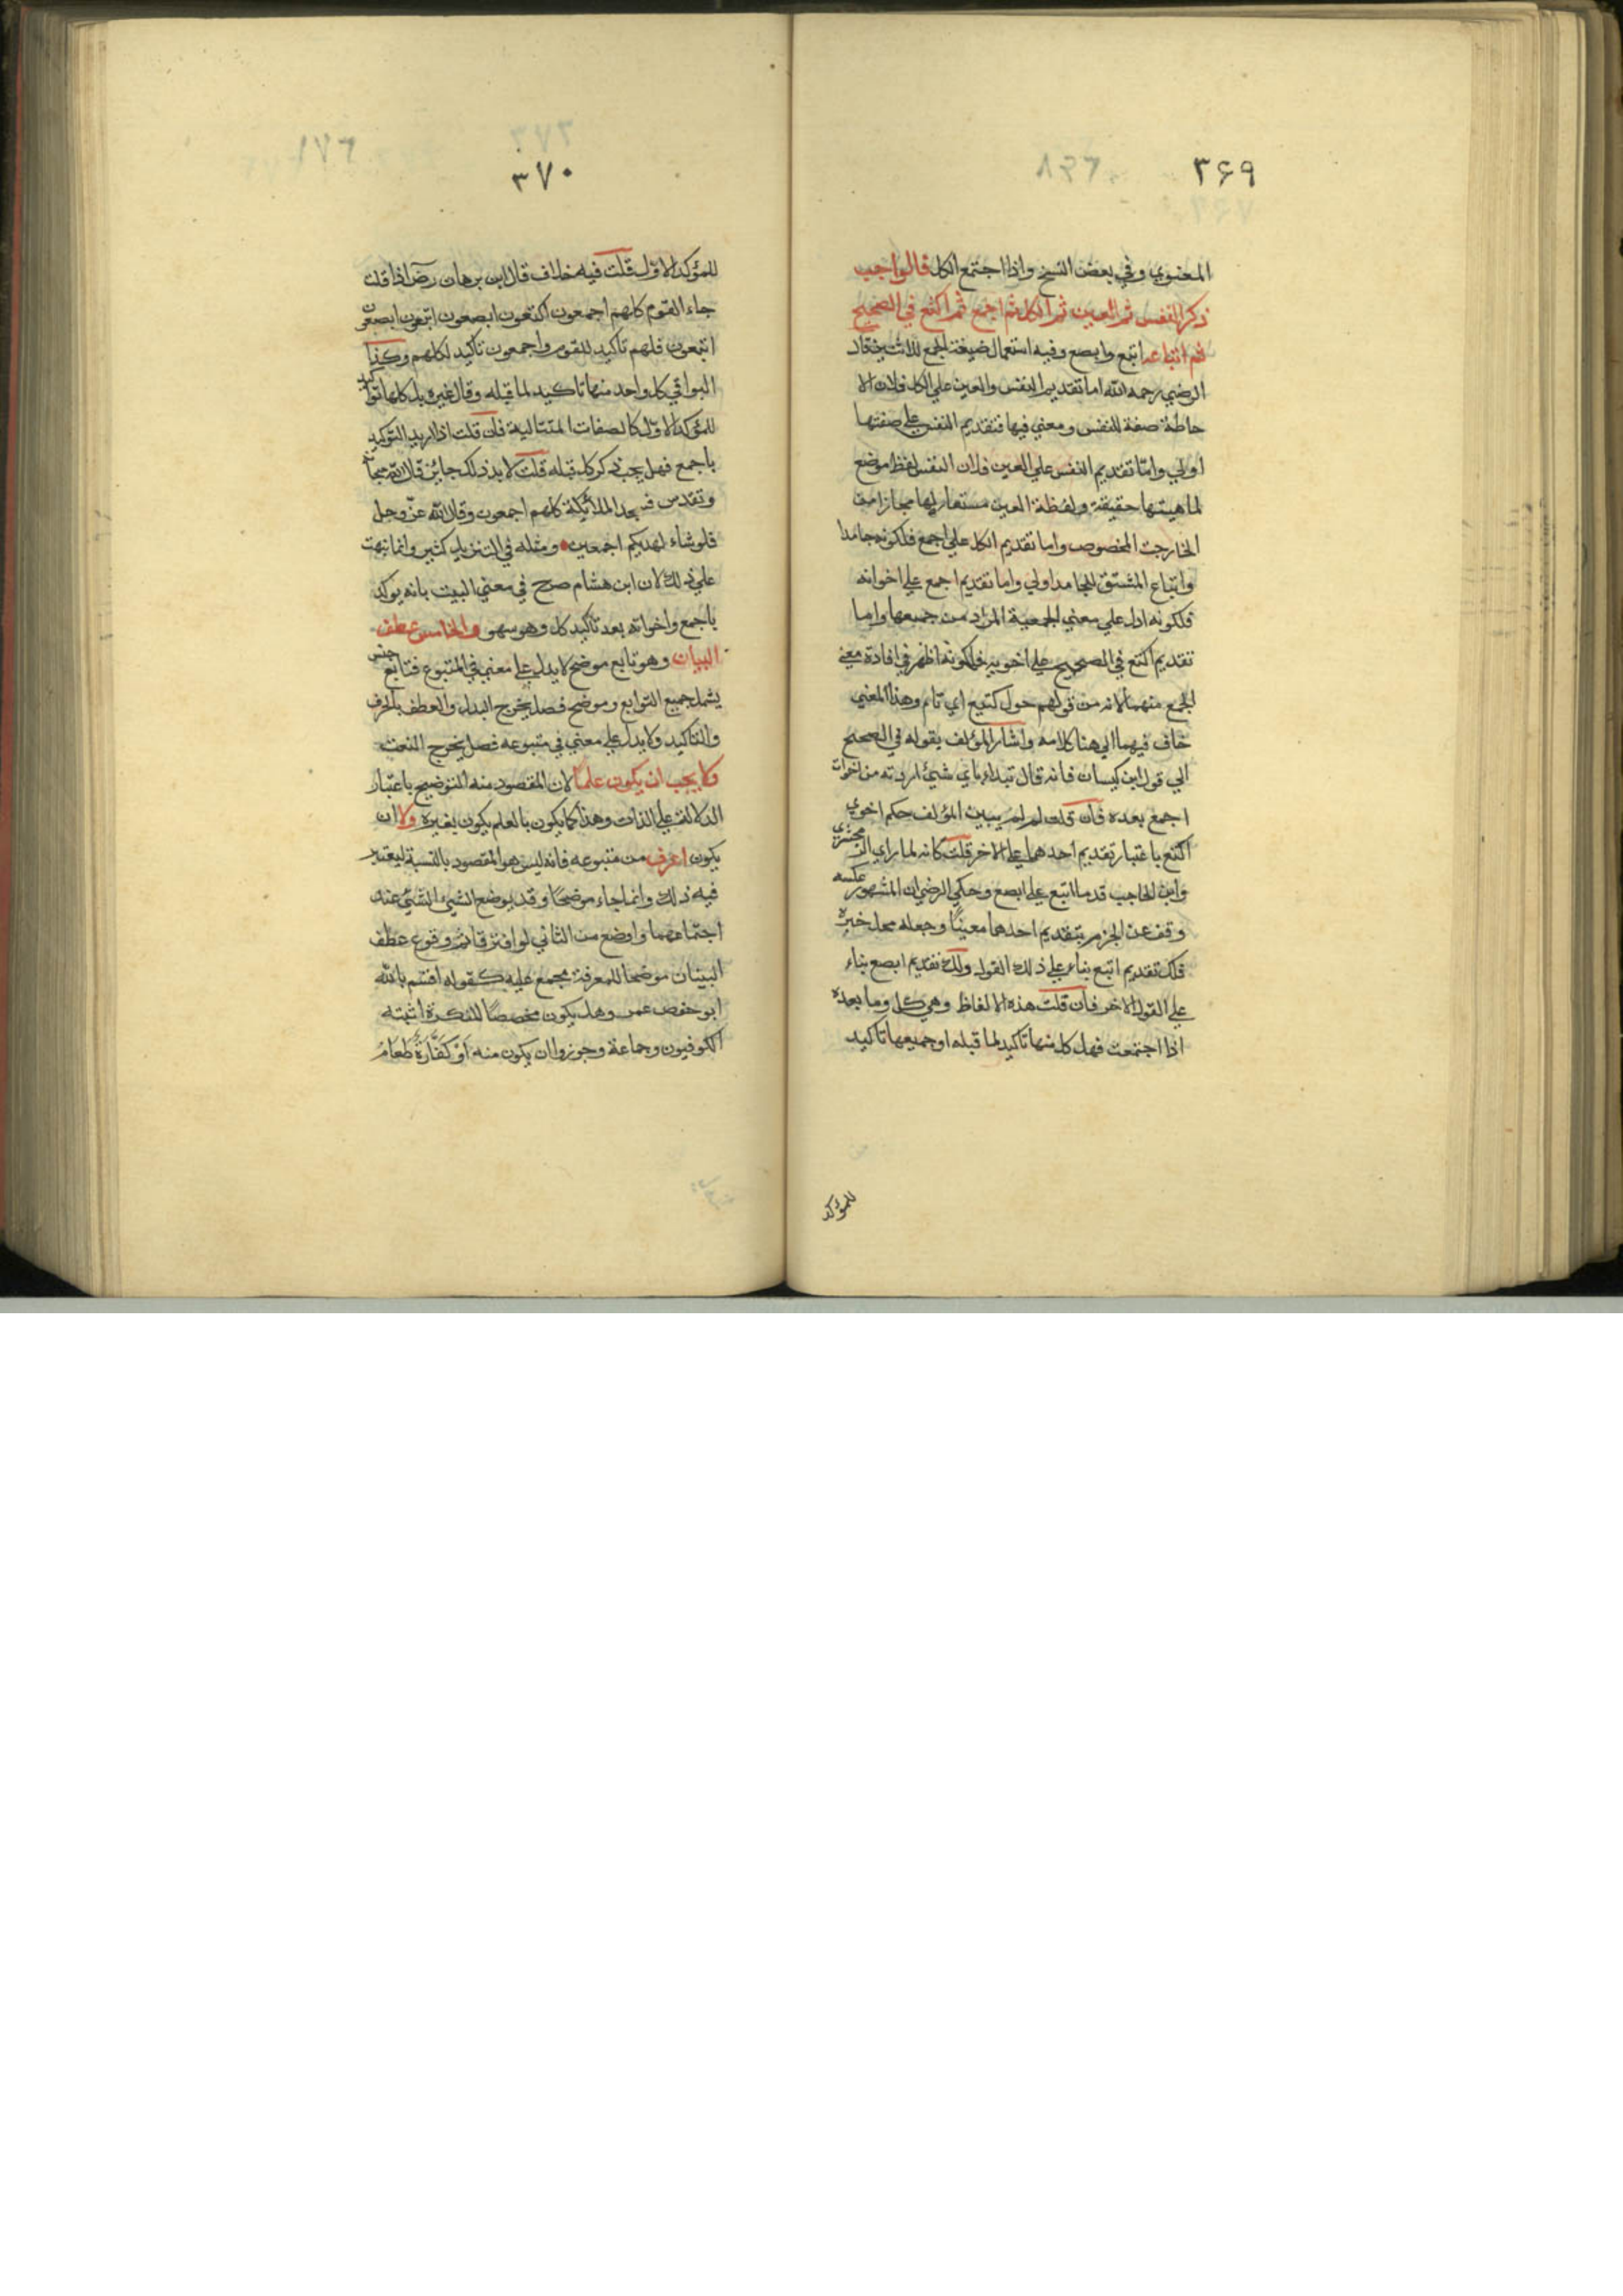 ٣۶٩
المعنوي وفي بعض النسخ واذا اجتمع الكل قالواجب
ذكر النفس ثم العين ثم الكل ثم اجمع ثم اكتع في الصحيح
ثم اتباعه ابتع وابصع وفيه استعمال صيغة الجمع للاثنين قال
الرضي رحمه الله اما تقديم النفس والعين علي الكل فلان الا
حاطة صفة للنفس ومعني فيها فتقديم النفس علي صفتها
اولي وامّا تقديم النفس علي العين فلان النفس لفظ موضع
لماهيتها حقيقة ولفظة العين مستعار لها مجازا من
الخارجت المخصوص واما تقديم الكل علي اجمع فلكونه جامدا
واتباع المشتق للجامد اولي واما تقديم اجمع علي اخواته
فلكونه ادل علي معني الجمعية المراد من جميعها واما
تقديم اكتع في الصحيح علي اخويه فلكونه اظهر في افادة معني
الجمع منهما لانه من قولهم حول كتيع اي تام وهذا المعني
خاف فيهما الي هنا كلامه واشار المؤلف بقوله في الصحيح
الي قول ابن كيسان فانه قال تبداء باي شيئ اردته من اخوات
اجمع بعده فان قلت لم لم يبين المؤلف حكم اخوي
اكتع باعتبار تقديم احدهما علي الاخر قلت كانه لما راي الزمخشري
وابن الحاجب قدما ابتع علي ابصع وحكي الرضي ان المشهور عكسه
وقف عن الجزم بتقديم احدهما معينًا وجعله محل خيرة
فلك تقديم ابتع بناء علي ذلك القول ولك تقديم ابصع بناء
علي القول الاخر فان قلت هذه الالفاظ وهي كل وما بعده
اذا اجتمعت فهل كل منها تاكيد لما قبله او جميعها تاكيد
للمؤكد
٣٧٠
للمؤكد الاوّل قلت فيه خلاف قال ابن برهان رضٓ اذا قلت
جاء القوم كلهم اجمعون اكتعون ابصعون ابتعون
ابتعون فلهم تاكيد للقوم واجمعون تاكيد لكلهم وكذا
البواقي كل واحد منها تاكيد لما قبله وقال غيره بل كلها توا كيد
للمؤكد الاوّل كالصفات المتتالية فان قلت اذا اريد التوكيد
باجمع فهل يجب ذكر كل قبله قلت لا بل ذلك جائز قال الله
وتقدس فسجد الملائيكة كلهم اجمعون وقال الله عزّ وجل
فلو شاء لهديكم اجمعين ومثله في التنزيل كثير وانما نبهت
علي ذلك لان ابن هشام صرح في معني البيت بانه يوكد
باجمع واخواته بعد تاكيد كل وهو سهو والخامس عطف
البيان وهو تابع موضح لا يدل علي معني في المتبوع فتابع جنس
يشمل جميع التوابع وموضح فصل يخرج البدل والعطف بالحرف
والتاكيد ولا يدل علي معني في متبوعه فصل يخرج النعت
ولا يجب ان يكون علمًا لان المقصود منه التوضيح باعتبار
الدلالة علي الذات وهذا كما يكون بالعلم يكون بغيره ولا ان
يكون اعرف من متبوعه فانه ليس هو المقصود بالنسبة ليعتبر
فيه ذلك وانما جاء موضحًا وقد يوضح الشيئ الشيئ عند
اجتماعهما واوضح من الثاني لو افترقا ثم وقوع عطف
البيان موضحا للمعرفة مجمع عليه كقوله اقسم بالله
ابو حفص عمر وهل يكون مخصصًا للنكرة اثبته
الكوفيون وجماعة وجوزوا ان يكون منه اَوْ كَفَّارَةٌ طَعَامُ